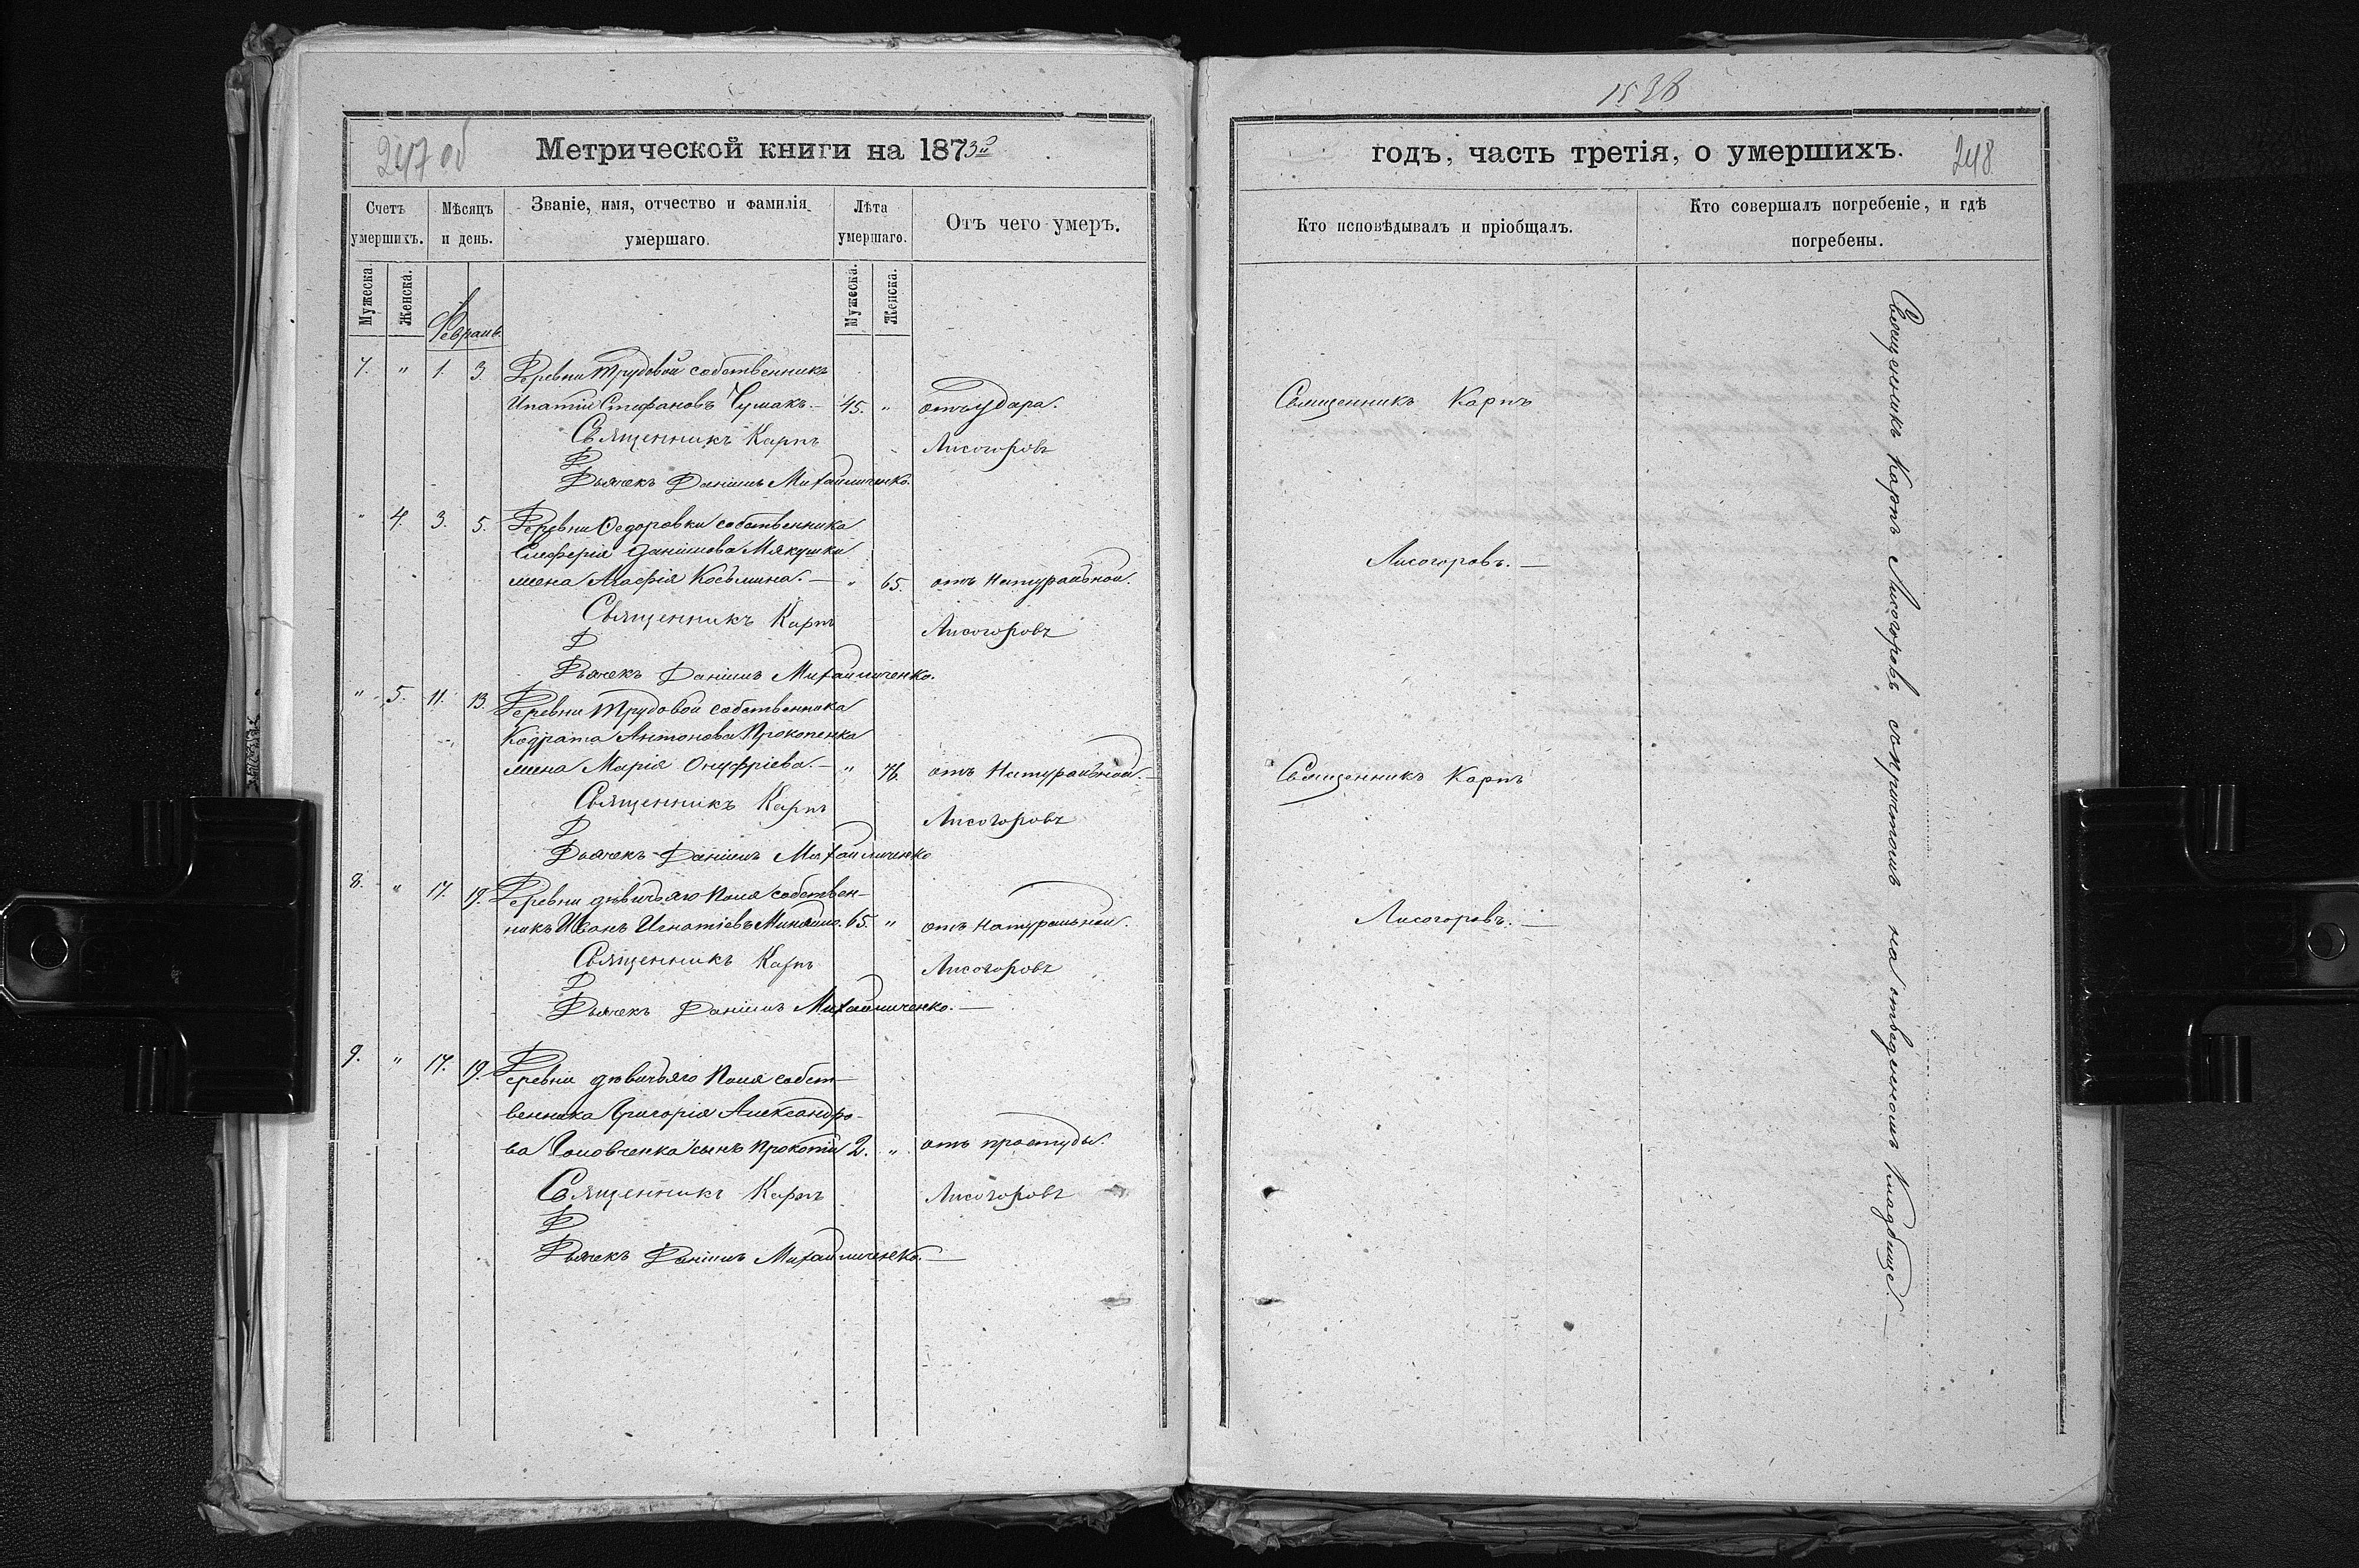 247 об
Метрической книги на 1873й
Счетъ умершихъ.
Мѣсяцъ и день.
Званіе, имя, отчество и фамилія умершаго.
Лѣта умершаго.
Отъ чего умеръ.
Мужеска.
Женска.
Мужеска.
Женска.
Февраль
7. " 1. 3. Деревни Трудовой собственникъ
Ипатій Стефановъ Чумакъ. — 45. " отъ удара.
Священникъ Карпъ Лисогоровъ
Дьячекъ Даніилъ Михайличенко.
" 4. 3. 5. Деревни Федоровки собственника
Елеферія Данилова Мякушки
жена Агафія Косьмина. — " 65. отъ натуральной.
Священникъ Карпъ Лисогоровъ
Дьячекъ Даніилъ Михайличенко.
" 5. 11. 13. Деревни Трудовой собственника
Кодрата Антонова Прокопенка
жена Марія Онуфріева. — " 76. отъ натуральной. —
Священникъ Карпъ Лисогоровъ
Дьячекъ Даніилъ Михайличенко
8. " 17. 19. Деревни дѣвичьяго Поля собствен-
никъ Иванъ Игнатіевъ 65. " отъ натуральной.
Священникъ Карпъ Лисогоровъ
Дьячекъ Даніилъ Михайличенко. —
9. " 17. 19. Деревни дѣвичьяго Поля собст-
венника Григорія Александро-
ва Головченка сынъ Прокопій 2. " отъ простуды.
Священникъ Карпъ Лисогоровъ
Дьячекъ Даніилъ Михайличенко. —
1538
годъ, часть третія, о умершихъ.
248
Кто исповѣдывалъ и пріобщалъ.
Кто совершалъ погребеніе, и гдѣ
погребены.
Священникъ Карпъ
Лисогоровъ. —
Священникъ Карпъ
Лисогоровъ. —
Священникъ Карпъ Лисогоровъ съ причтомъ на отведенномъ Кладбище. —